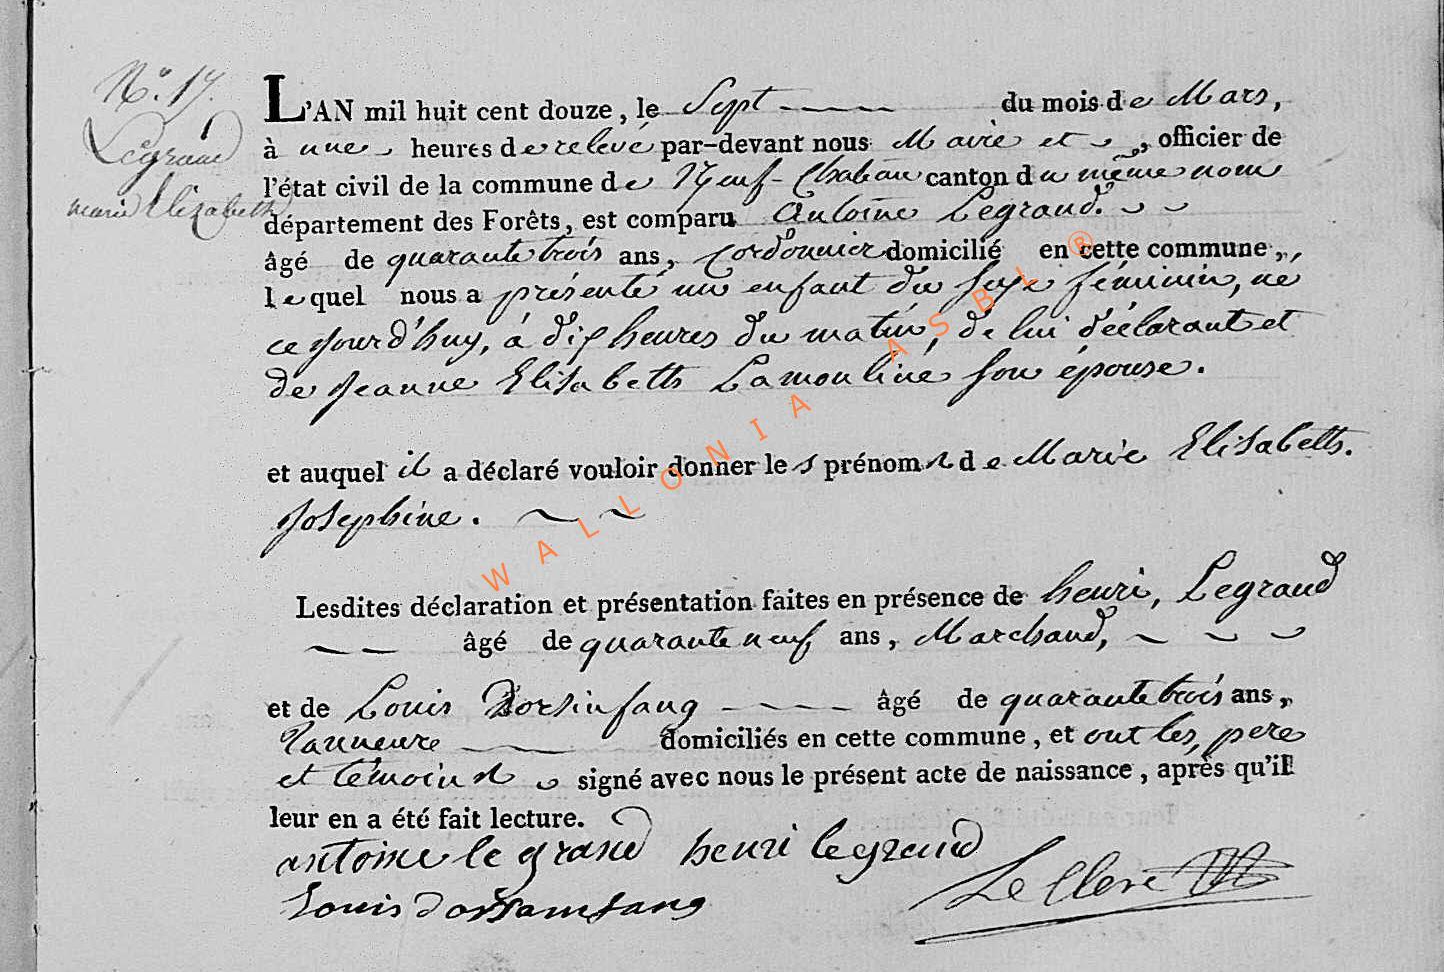 N.° 17.
Legrand
marie Elizabeth
L'AN mil huit cent douze, le Sept du mois de Mars,
à une heures de relevé par-devant nous Maire et, officier de
l'état civil de la commune de Neuf-Chateau canton du même nom
département des Forêts, est comparu Antoine Legrand.
âgé de quarante trois ans, Cordonnier domicilié en cette commune,,
lequel nous a présenté un enfant du sexe féminin, né
ce jourd'huy, à dix heures du matin, de lui déclarant et
de Jeanne Elisabeth Lamouline son épouse.
et auquel il a déclaré vouloir donner les prénoms de Marie Elisabeth.
Josephine.
Lesdites déclaration et présentation faites en présence de henri, Legrand
âgé de quarante neuf ans, Marchand,
et de Louis Dorsinfang âgé de quarante trois ans,
Tanneure domiciliés en cette commune, et ont les, pere
et témoins signé avec nous le présent acte de naissance, après qu'il
leur en a été fait lecture.
antoine le grand henri legrand
Louis dorsamfang Le Clere
WALLONIA ASBL ®